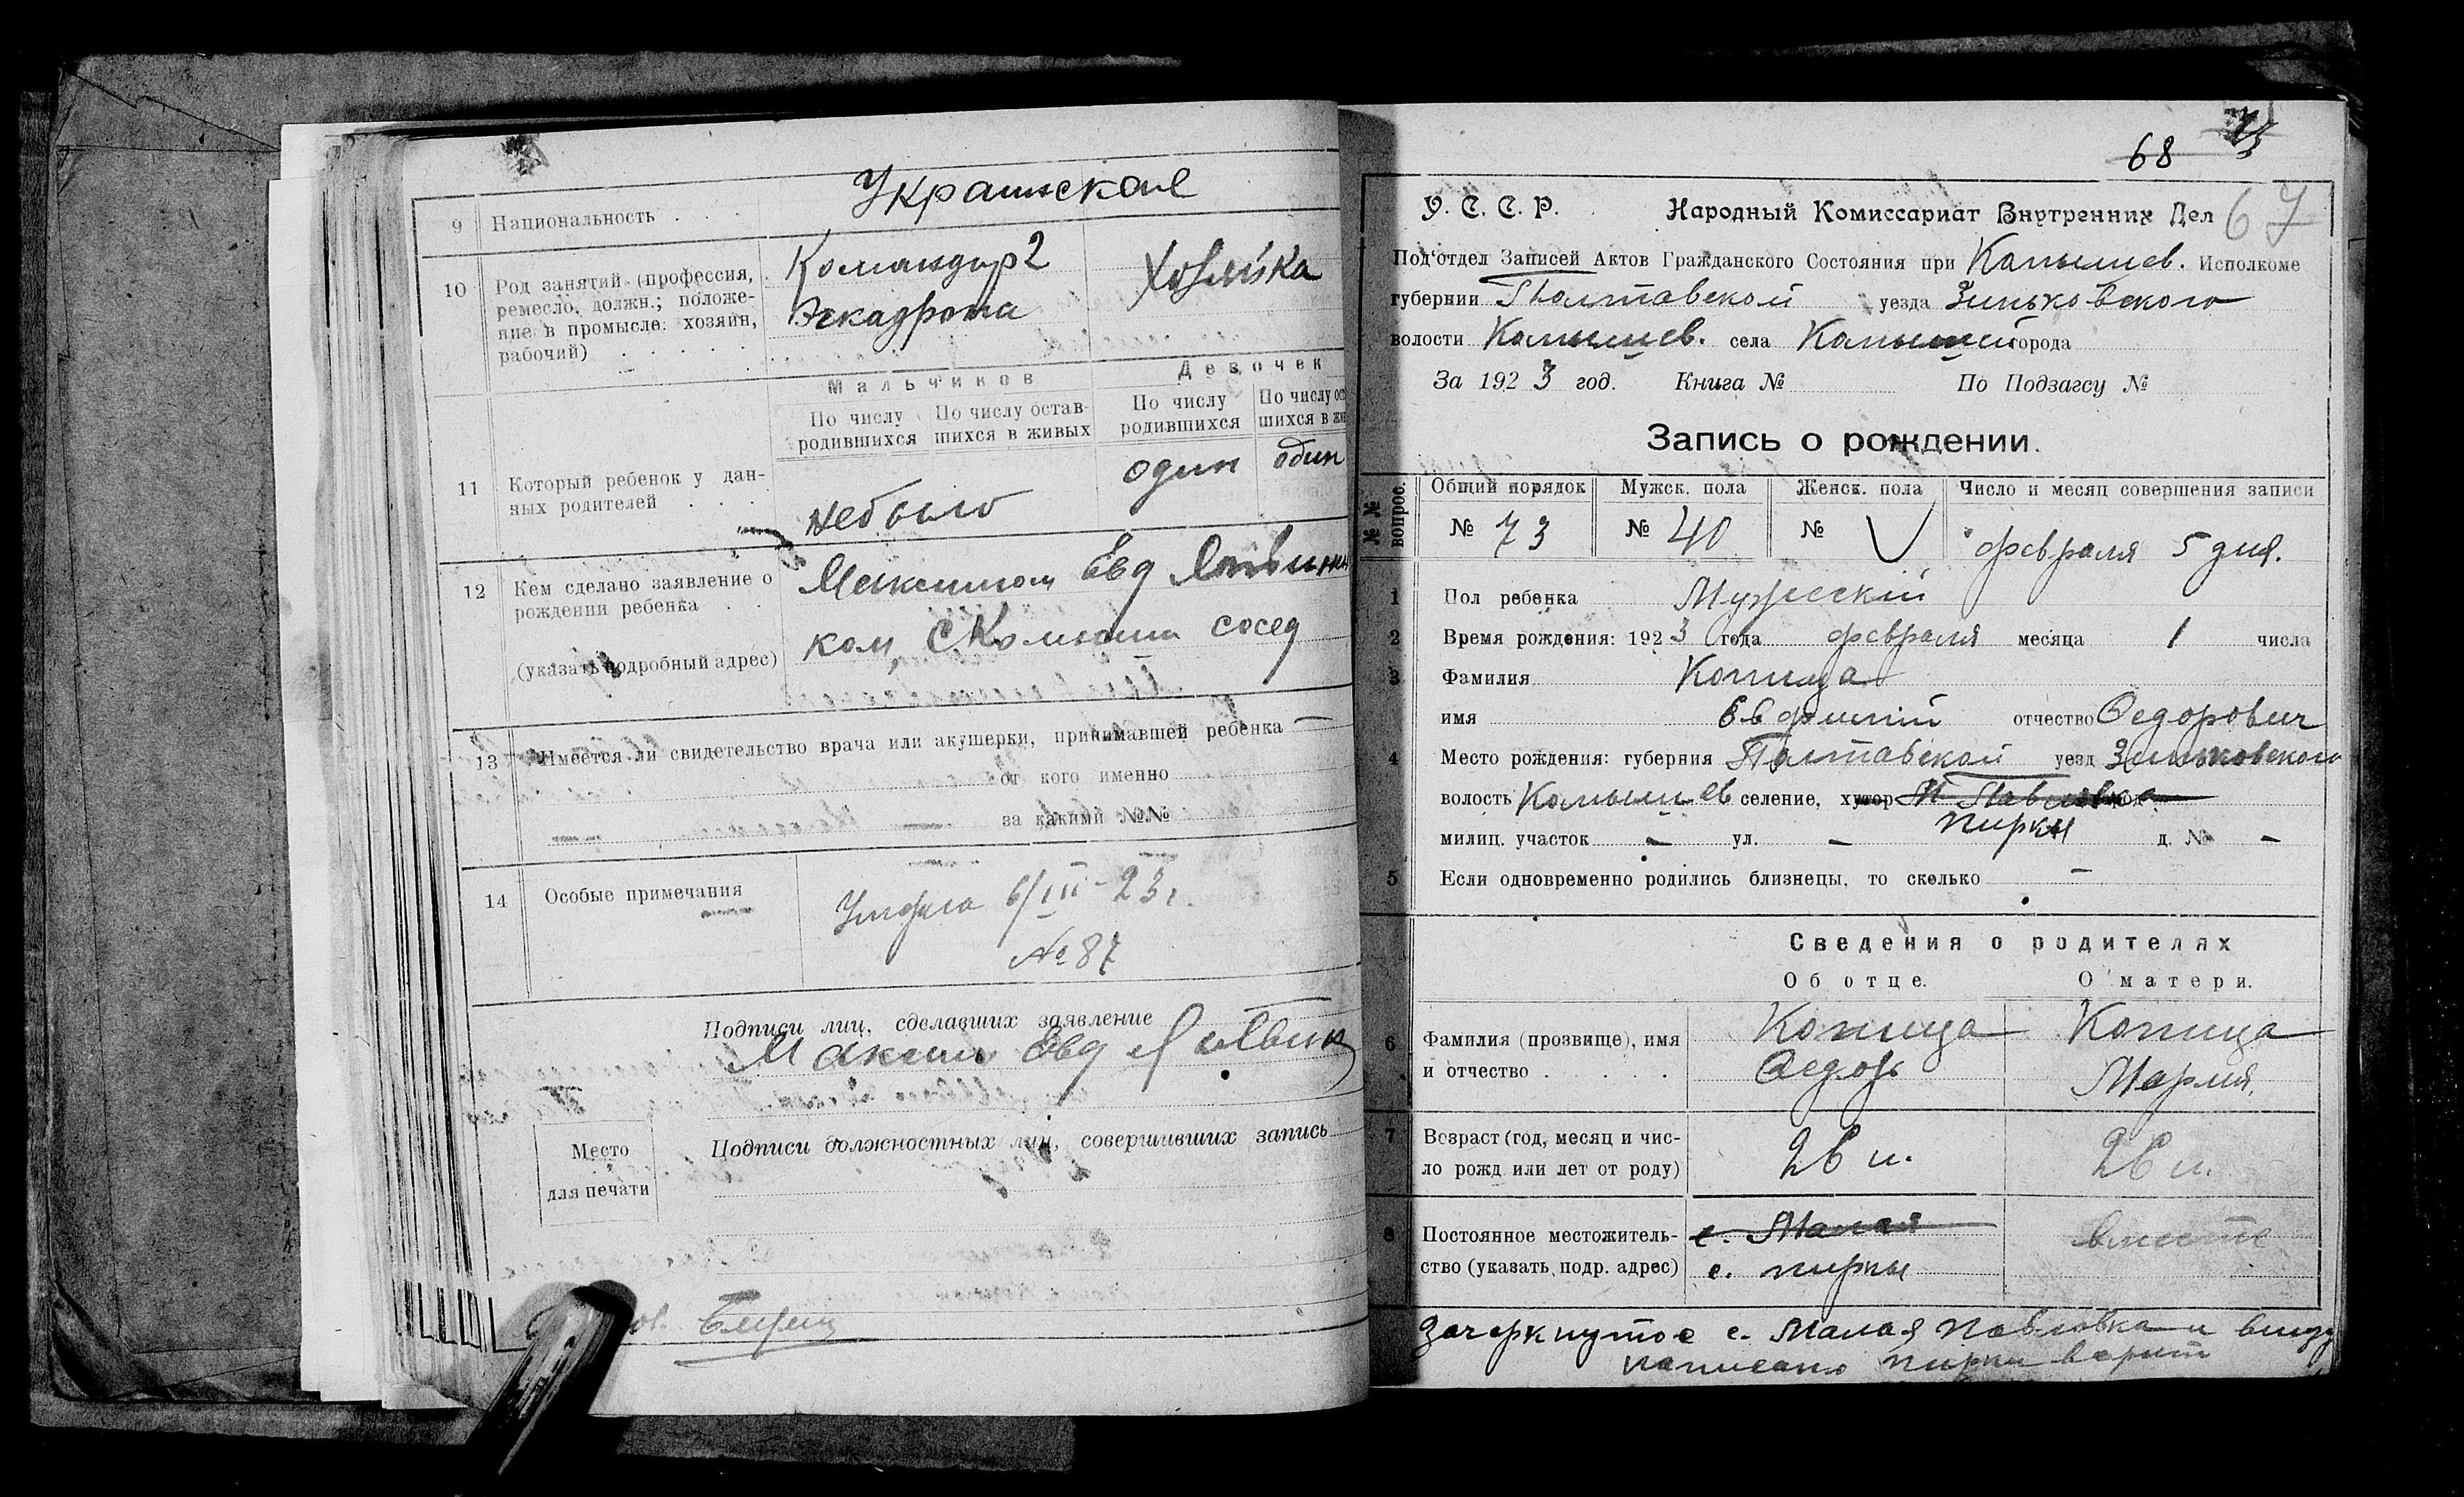 9 Национальность . . . Украинское
10 Род занятий (профессия, ремесло, должн.; положение в промысле: хозяин, рабочий) . . . . .
Командир 2
Эскадрона
Хозяйка
Мальчиков Девочек
По числу родившихся По числу оставшихся в живых По числу родившихся По числу ос шихся в жи
11 Который ребенок у данных родителей . . .
небыло один один
12 Кем сделано заявление о рождении ребенка . .
(указать подробный адрес)
Максимом Евд Литвин
ком, сосед
13 Имеется ли свидетельство врача или акушерки, принимавшей ребенка —
от кого именно
за какими №№
14 Особые примечания
6/III-23 г.
№ 87
Подписи лиц, сделавших заявление
Максим Евд Литвин
Подписи должностных лиц, совершивших запись
Место
для печати
68
67
У. С. С. Р. Народный Комиссариат Внутренних Дел
Подотдел Записей Актов Гражданского Состояния при Камышев. Исполкоме
губернии Полтавской уезда Зиньковского
волости Камышев. села города
За 1923 год. Книга № По Подзагсу №
Запись о рождении.
№№ вопрос. Общий порядок Мужск. пола Женск. пола Число и месяц совершения записи
№ 73 № 40 № февраля 5 дня.
1 Пол ребенка Мужеский
2 Время рождения: 1923 года февраля месяца 1 числа
3 Фамилия Копица
имя Евфимий отчество Федорович
4 Место рождения: губерния Полтавской уезд Зиньковского
волость Камышев селение, хутор М Павловка
пирки
милиц. участок — ул. — д. № —
5 Если одновременно родились близнецы, то сколько —
Сведения о родителях
Об отце. О матери.
6 Фамилия (прозвище), имя и отчество . . . .
Копица Копица
Федор Мария.
7 Возраст (год, месяц и число рожд или лет от роду)
26 л. 26 л.
8 Постоянное местожительство (указать подр. адрес)
с. Малая вместе
с. пирки
Зачеркнутое с. Малая Павловка и
написано пирки верить